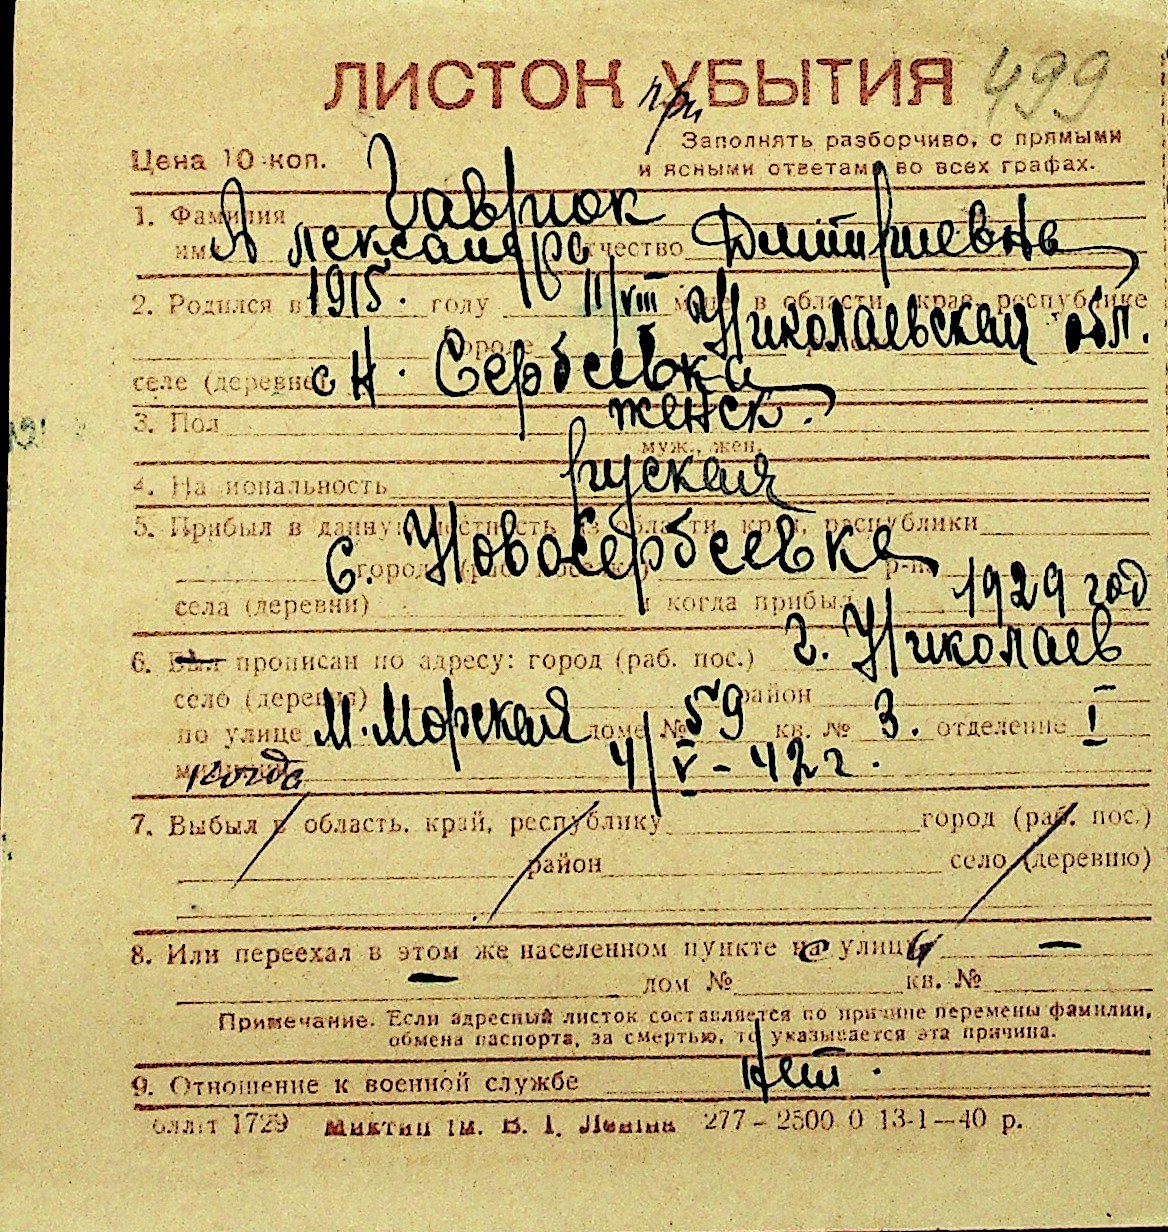 ЛИСТОК при УБЫТИЯ 499
Цена 10 коп. Заполнять разборчиво, с прямыми
и ясными ответами во всех графах.
Гаврюк
1. Фамилия
имя Александра отчество Дмитриевна
2. Родился в 1915. году 11/VIII м-це в области, крае, республике
Николаевская обл.
городе
селе (деревне) с Н. Сербеевка
3. Пол женск.
муж., жен.
4. Национальность руская
5. Прибыл в данную местность из области, края, республики
с. Новосербеевке
города (раб. поселка) р-на
села (деревни) и когда прибыл 1929 год
6. Был прописан по адресу: город (раб. пос.) г. Николаев
село (деревня) район
по улице М. Морская доме № 59 кв. № 3. отделение I
милиции когда 4/V-42 г.
7. Выбыл в область, край, республику город (раб. пос.)
район село (деревню)
8. Или переехал в этом же населенном пункте с улицы —
— дом № кв. №
Примечание. Если адресный листок составляется по причине перемены фамилии,
обмена паспорта, за смертью, то указывается эта причина.
9. Отношение к военной службе нет.
1729 ім. В. І. Леніна 277-2500 0 13-1-40 р.